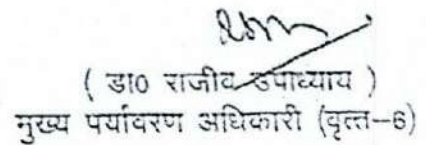 ( डा0 राजीव उपाध्याय )
मुख्य पर्यावरण अधिकारी (वृत्त-6)